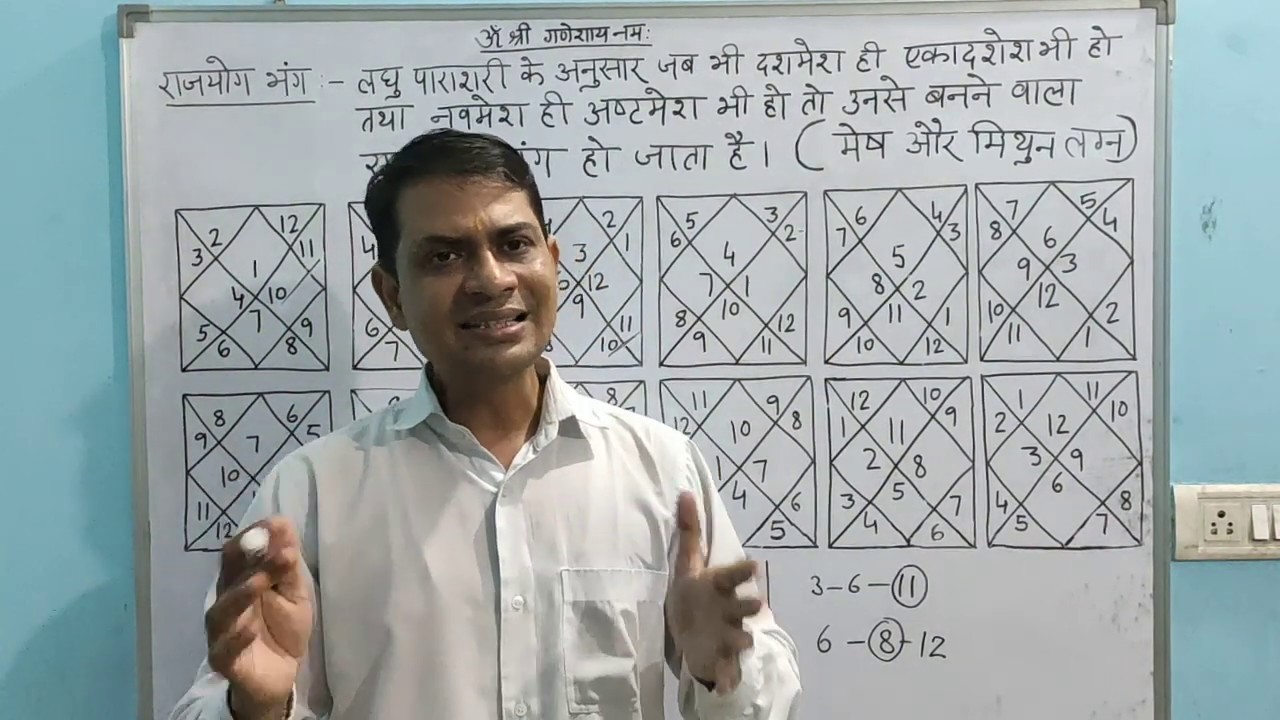 ॐ श्री गणेशाय नमः
राजयोग भंग :- लघु पाराशरी के अनुसार जब भी दशमेश ही एकादशेश भी हो
तथा नवमेश ही अष्टमेश भी हो तो उनसे बनने वाला
हो जाता है। (मेष और मिथुन लग्न)
2 12
3 11
1
4 10
7
5 9
6 8
4
6
7
2
3 1
12
9
11
8 10
5 3
6 2
4
7 1
10
8 12
9 11
6 4
7 3
5
8 2
11
9 1
10 12
7 5
8 4
6
9 3
12
10 2
11 1
8 6
9 5
7
10
11
12
8
11 9
12 8
10
1 7
4
6
5
12 10
1 9
11
2 8
5
3 7
4 6
1 11
2 10
12
3 9
6
4 8
5 7
3-6-11
6-8-12